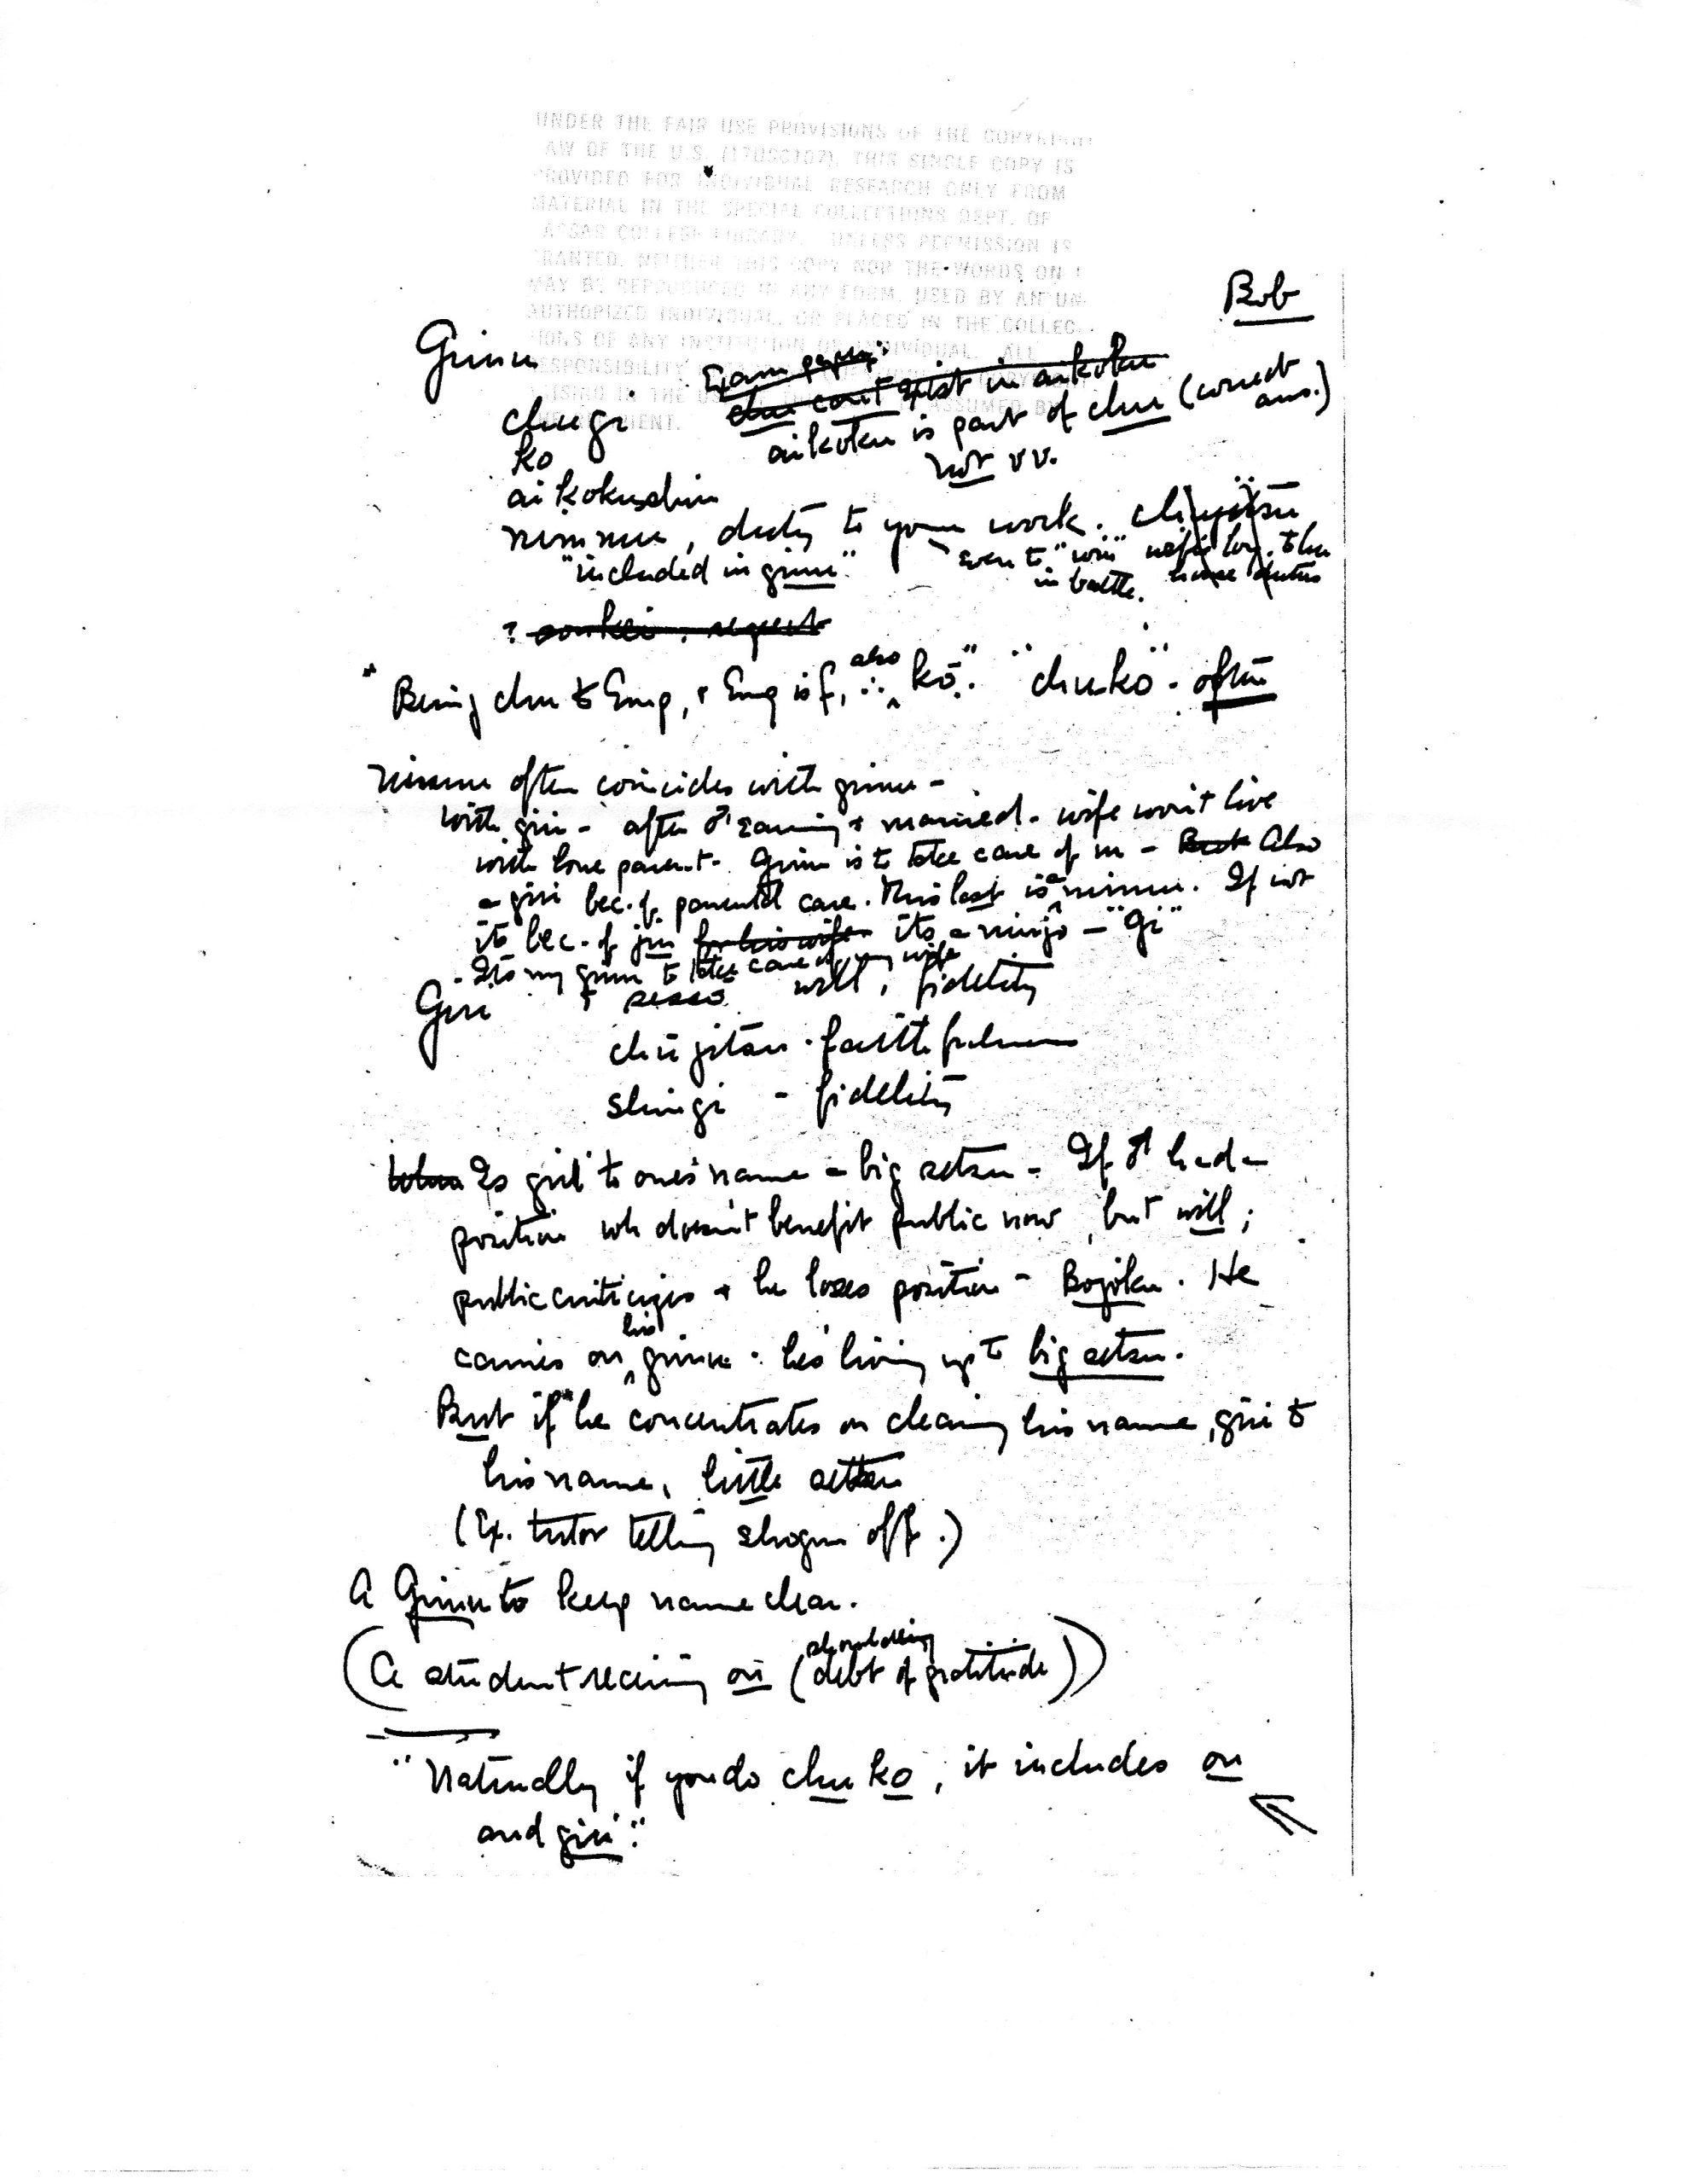 UNDER THE FAIR USE PROVISIONS OF THE COPYRIGHT
AW OF THE U.S. (17USC107), THIS SINGLE COPY IS
PROVIDED FOR INDIVIDUAL RESEARCH ONLY FROM
MATERIAL IN THE SPECIAL COLLECTIONS DEPT. OF
ASSAR COLLEGE LIBRARY. UNLESS PERMISSION IS
GRANTED, NEITHER THIS COPY NOR THE WORDS ON I
MAY BE REPRODUCED IN ANY FORM, USED BY AN UN-
AUTHORIZED INDIVIDUAL, OR PLACED IN THE COLLEC-
TIONS OF ANY INSTITUTION OR INDIVIDUAL. ALL
RESPONSIBILITY
ARISING IN THE USE OF THE ASSUMED BY
THE RECIPIENT.
Bob
Gimu
Exam paper:
chu can't exist in aikoku
chugi
aikoku is part of chu (correct ans.)
ko
not vv.
aikokushin
nimmu, duty to your work. chujitsu
"included in gimu".
even to "win" in battle.
? sonkei, respect
"Being chu to Emp, & Emp is f, ∴ also kō". "chuko" - often
Nimmu often coincides with gimu -
with giri - after ♂ earning & married - wife won't live
with lone parent. Gimu is to take care of m - But Also
a giri bec. of parental care. This last is a nimmu. If not
it's bec. of jin for his wife it's a ninjo - "gi"
- It's my gimu to take care of my wife
Giri
sessō will, fidelity
chūjitsu - faithfulness
shingi - fidelity
When Is giri to one's name a big setsu - If ♂ had a
position wh doesn't benefit public now, but will;
public criticizes & he loses position - Bojoku. He
carries on his gimu - he's living up to big setsu.
But if he concentrates on clearing his name, giri to
his name, little setsu
(Ex. tutor telling shogun off.)
A Gimu to keep name clear.
(A student receiving on (shouldering debt of gratitude))
"Naturally if you do chu ko, it includes on
and giri".